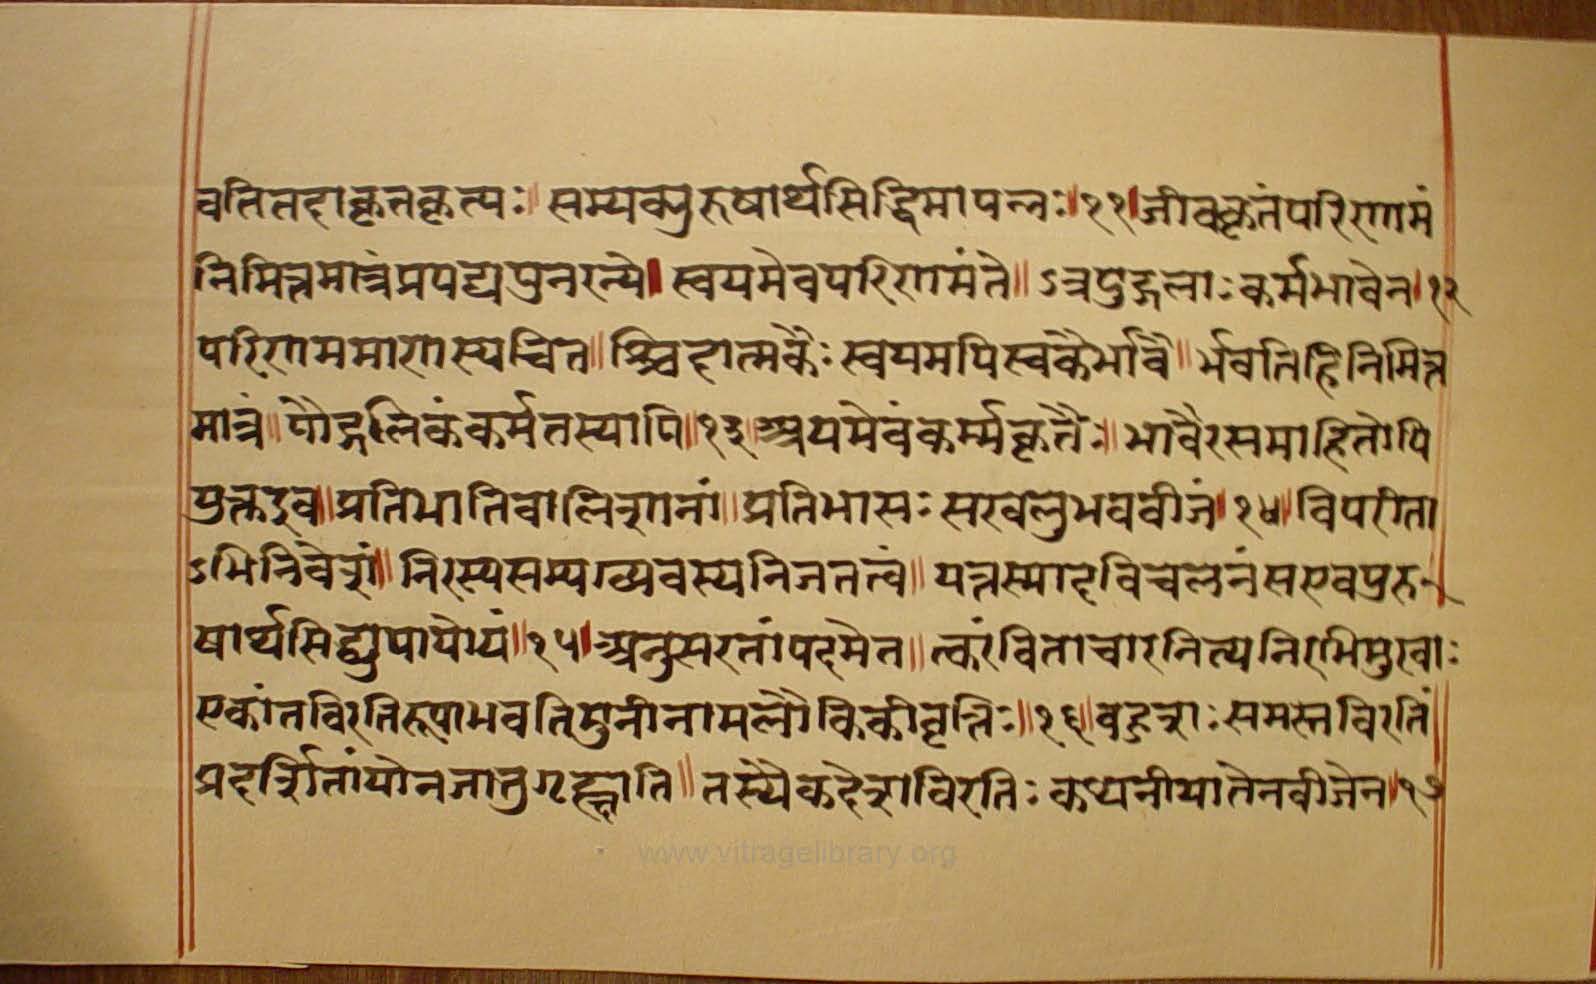 वतितदाकृतकृत्यः॥ सम्यक्पुरुषार्थसिद्धिमापन्नः॥११॥जीवकृतंपरिणामं
निमित्तमात्रंप्रपद्यपुनरन्ये॥ स्वयमेवपरिणमंते॥ ऽत्रपुद्गलाः कर्मभावेन॥१२
परिणममाणस्यचित॥ श्चिदात्मकैः स्वयमपिस्वकैर्भावै॥ र्भवतिहिनिमित्त
मात्रं॥ पौद्गलिकंकर्मतस्यापि॥१३॥अयमेवंकर्म्मकृतैः॥ भावैरसमाहितोपि
युक्तइव॥ प्रतिभातिबालिशानां॥ प्रतिभासः सखलुभवबीजं॥१४॥ विपरीता
ऽभिनिवेशं॥ निरस्यसम्यग्व्यवस्यनिजतत्वं॥ यत्तस्मादविचलनंसएवपुरु
षार्थसिद्ध्युपायोयं॥१५॥अनुसरतांपदमेत॥ त्करंविताचारनित्यनिरभिमुखाः
एकांतविरतिरूपाभवतिमुनीनामलौकिकीवृत्तिः॥१६॥बहुशः समस्तविरतिं
प्रदर्शितांयोनजातुगृह्णाति॥ तस्यैकदेशविरतिः कथनीयातेनबीजेन॥१७
www.vitragelibrary.org